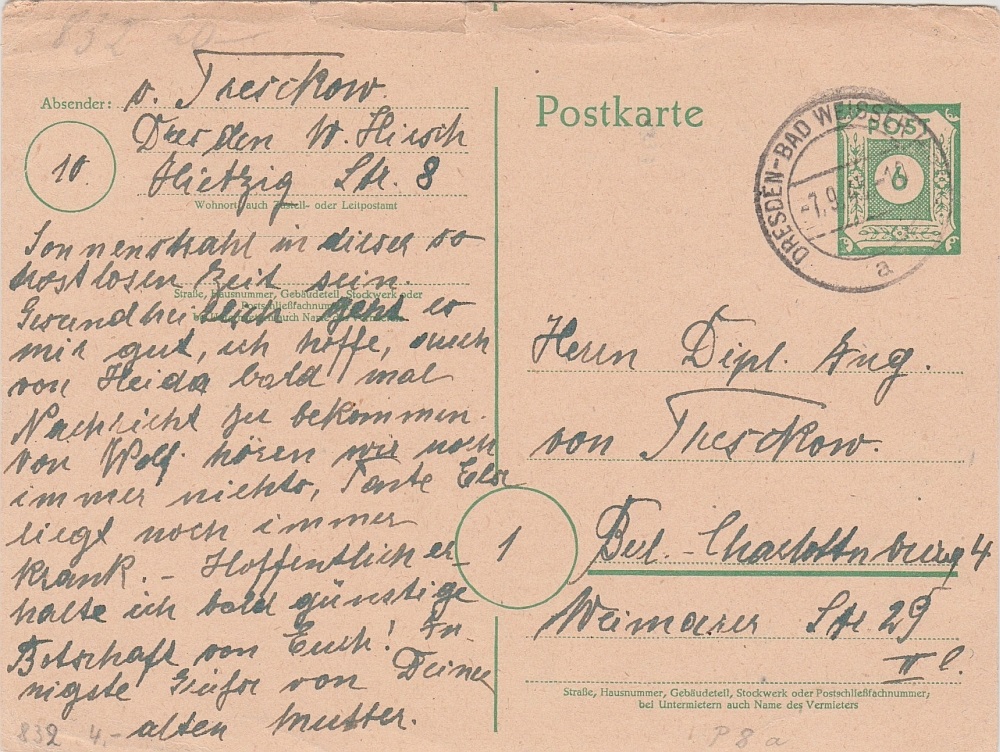 832 20
Absender: v. Tresckow.
10
Dresden W. Hirsch
Hietzig Str. 8
Wohnort, auch Zustell- oder Leitpostamt
Sonnenstrahl in dieser so
trostlosen Zeit sein.
Straße, Hausnummer, Gebäudeteil, Stockwerk oder
Postschließfachnummer
auch Name des Vermieters
Gesundheitlich geht es
mir gut, ich hoffe, auch
von Heida bald mal
Nachricht zu bekommen.
von Wolf hören wir noch
immer nichts, Tante Else
liegt noch immer
krank. - Hoffentlich er-
halte ich bald günstige
Botschaft von Euch! In-
nigste Grüße von Deiner
alten Mutter.
832 4,-
Postkarte
DRESDEN-BAD WEISSER
-7.9.
a
POST
6
Herrn Dipl. Ing.
von Tresckow.
1
Berl. - Charlottenburg 4
Weimarer Str. 29
II l.
Straße, Hausnummer, Gebäudeteil, Stockwerk oder Postschließfachnummer;
bei Untermietern auch Name des Vermieters
P 8 a